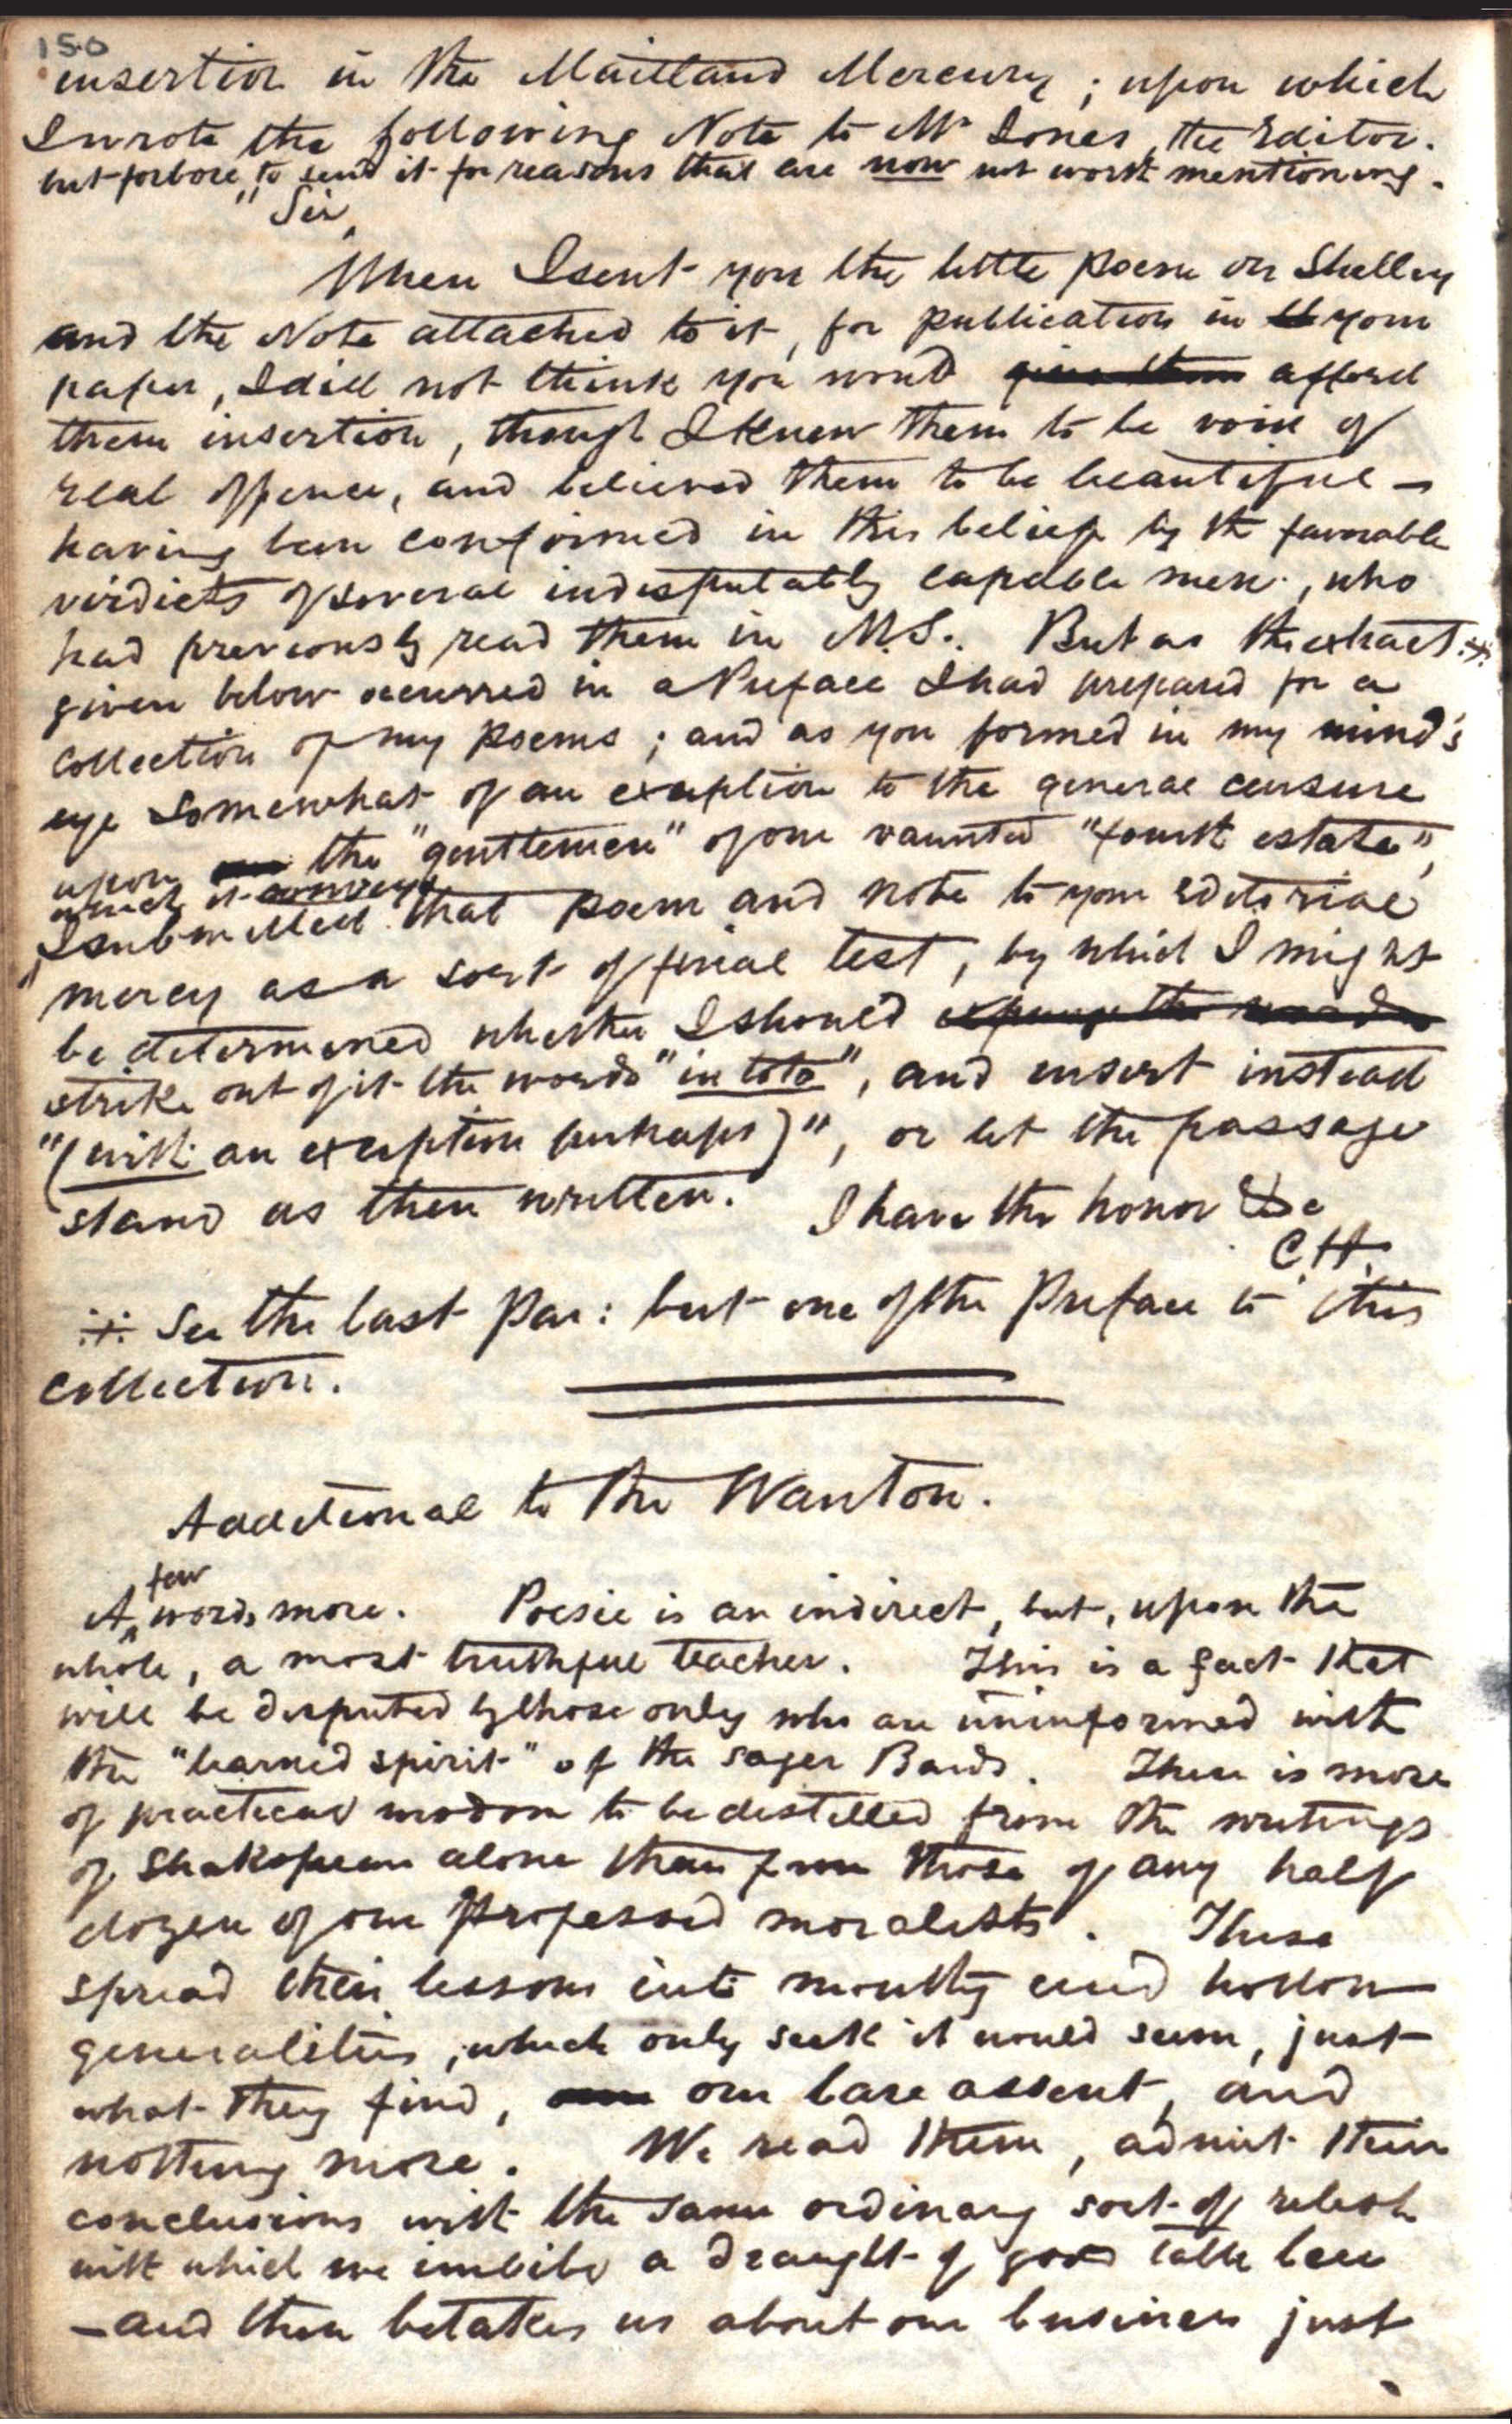 150
insertion in the Maitland Mercury ; upon which
I wrote the following Note to Mr Jones, the Editor.
but forbore to send it for reasons that are now not worth mentioning.
"Sir,
When I sent you the little poem on Shelley
and the Note attached to it, for publication in your
paper, I did not think you would give them afford
them insertion, though I knew them to be void of
real offence, and believed them to be beautiful —
having been confirmed in this belief by the favorable
verdicts of several indisputably capable men, who
had previously read them in M.S. But as the extract
given below occurred in a Preface I had prepared for a
collection of my poems ; and as you formed in my mind's
eye somewhat of an exception to the general censure
upon the "gentlemen" of our vaunted "fourth estate",
which it conveys
I submitted that poem and note to your editorial
"mercy as a sort of final test, by which I might
be determined whether I should expunge the words
strike out of it the words "in toto", and insert instead
"(with an exception perhaps)", or let the passage
stand as then written. I have the honor &c
C.H.
See the last par: but one of the Preface to this
collection.
Additional to the Wanton.
few
A words more. Poesie is an indirect, but, upon the
whole, a most truthful teacher. This is a fact that
will be disputed by those only who are uninformed with
the "learned spirit" of the sager Bards. There is more
of practical wisdom to be distilled from the writings
of Shakspeare alone than from those of any half
dozen of our professed moralists. These
spread their lessons into mouthy and hollow
generalities, which only seek it would seem, just
what they find, our bare assent, and
nothing more. We read them, admit their
conclusions with the same ordinary sort of relish
with which we imbibe a draught of good table beer
—and then betakes us about our business just